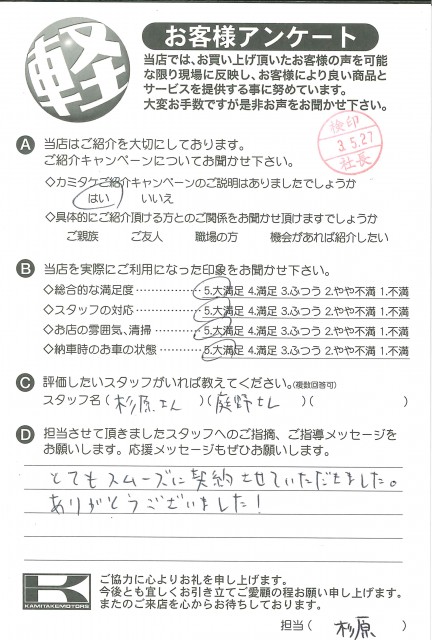 軽
お客様アンケート
当店では、お買い上げ頂いたお客様の声を可能
な限り現場に反映し、お客様により良い商品と
サービスを提供する事に努めています。
大変お手数ですが是非お声をお聞かせ下さい。
検印
3.5.27
社長
A 当店はご紹介を大切にしております。
ご紹介キャンペーンについてお聞かせ下さい。
◇カミタケご紹介キャンペーンのご説明はありましたでしょうか
はい いいえ
◇具体的にご紹介頂ける方とのご関係をお聞かせ頂けますでしょうか
ご親族 ご友人 職場の方 機会があれば紹介したい
B 当店を実際にご利用になった印象をお聞かせ下さい。
◇総合的な満足度……………5.大満足 4.満足 3.ふつう 2.やや不満 1.不満
◇スタッフの対応……………5.大満足 4.満足 3.ふつう 2.やや不満 1.不満
◇お店の雰囲気、清掃………5.大満足 4.満足 3.ふつう 2.やや不満 1.不満
◇納車時のお車の状態………5.大満足 4.満足 3.ふつう 2.やや不満 1.不満
C 評価したいスタッフがいれば教えてください。(複数回答可)
スタッフ名(杉原さん)(庭野さん)( )
D 担当させて頂きましたスタッフへのご指摘、ご指導メッセージを
お願いします。応援メッセージもぜひお願いします。
とてもスムーズに契約させていただきました。
ありがとうございました!
K
KAMITAKEMOTORS
ご協力に心よりお礼を申し上げます。
今後とも宜しくお引き立てご愛顧の程お願い申し上げます。
またのご来店を心からお待ちしております。
担当( 杉原 )